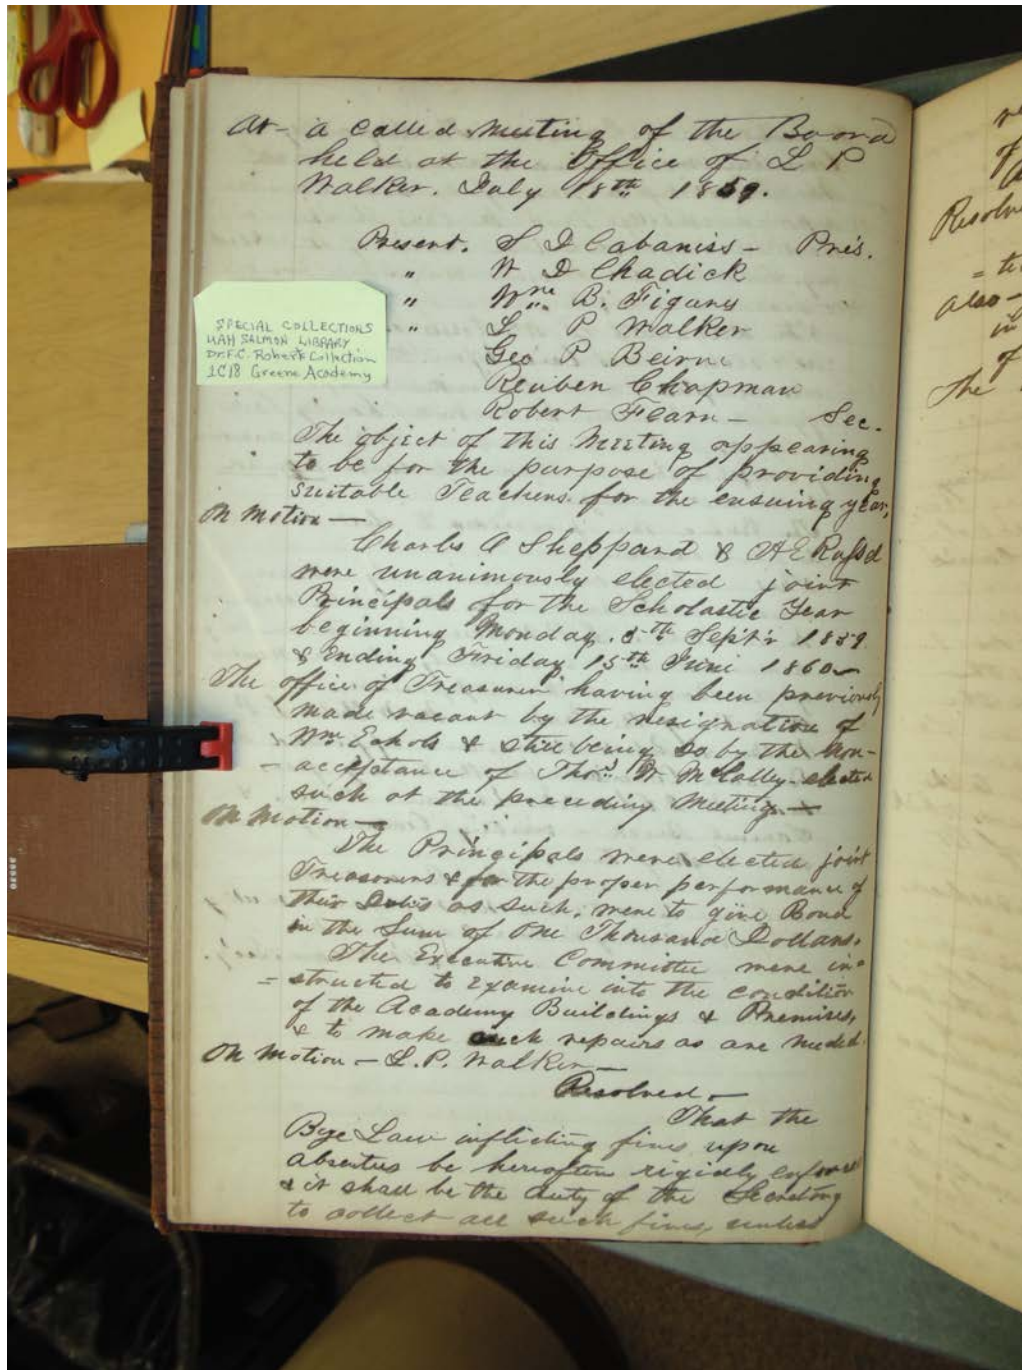 At a called Meeting of the Board
held at the Office of L P
Walker. July 18th 1859.
Present. S D Cabaniss - Pres.
" W D Chadick
" Wm B. Figures
" L P Walker
Geo P Beirne
Reuben Chapman
Robert Fearn - Sec.
SPECIAL COLLECTIONS
UAH SALMON LIBRARY
Dr. F.C. Roberts Collection
2C18 Greene Academy
The object of this Meeting appearing
to be for the purpose of providing
suitable Teachers for the ensuing year,
On Motion —
Charles A Sheppard & A E
were unanimously elected joint
Principals for the Scholastic Year
beginning Monday. 5th Sept'r 1859
& Ending Friday 15th June 1860 —
The office of Treasurer having been previously
made vacant by the resignation of
Wm Echols & still being so by the Non-
- acceptance of Thos W McCalley - elected
such at the preceding Meeting —
On Motion —
The Principals were elected joint
Treasurers & for the proper performance of
their Duties as such, were to give Bond
in the Sum of One Thousand Dollars.
The Executive Committee were in=
= structed to Examine into the condition
of the Academy Buildings & Premises,
& to make such repairs as are needed.
On Motion — L. P. Walker —
Resolved —
That the
Bye Law inflicting fines upon
absentees be hereafter rigidly enforced
& it shall be the duty of the Secretary
to collect all such fines, unless
Resolve
= 
also —
in
of
The
35530